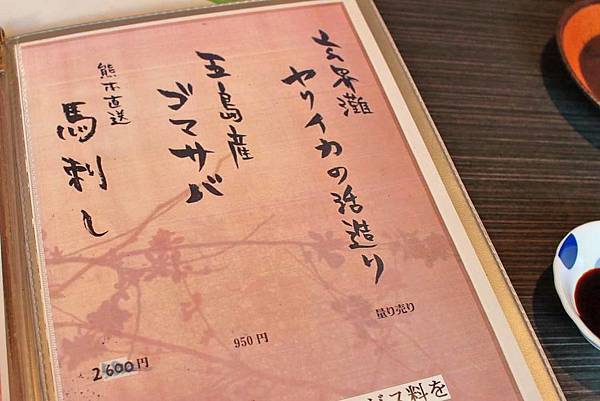 玄界灘
ヤリイカの活造り
量り売り
五島産
ゴマサバ
950円
熊本直送
馬刺し
2600円
料を